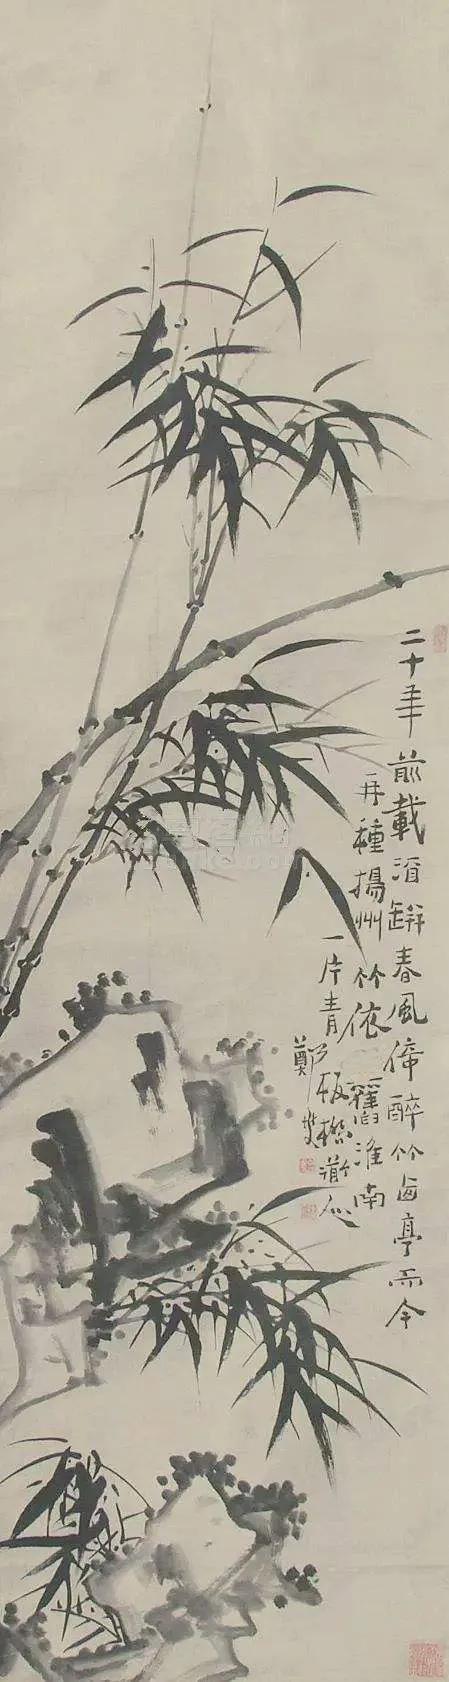 二十年前載酒缾春風倚醉竹西亭而今
再種揚州竹依舊淮南
一片青板橋道人
鄭燮